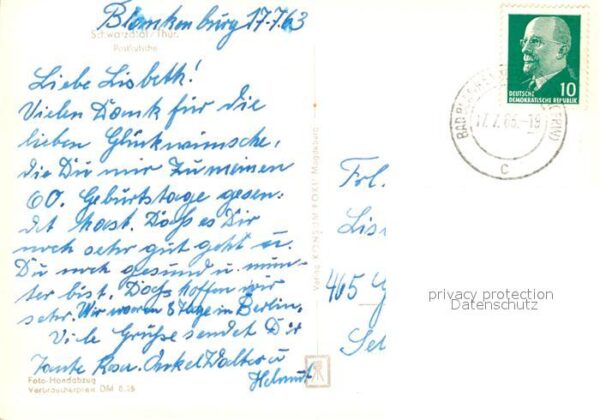 Blankenburg 17.7.63
Schwarzatal/Thür.
Postkutsche
Liebe Lisbeth!
Vielen Dank für die
lieben Glückwünsche,
die Du mir zu meinen
60. Geburtstage gesen-
det hast. Daß es Dir
noch sehr gut geht u.
Du noch gesund u. mun-
ter bist. Das hoffen wir
sehr. Wir waren 8 Tage in Berlin.
Viele Grüße sendet Dir
Tante Rosa. Onkel Walter u
Helmut
Foto-Handabzug
Verbraucherpreis DM 0,25
Verlag KONSUM FOKO Magdeburg
DEUTSCHE
DEMOKRATISCHE REPUBLIK
10
BAD
-19
C
Frl.
Lis
465
Se
privacy protection
Datenschutz